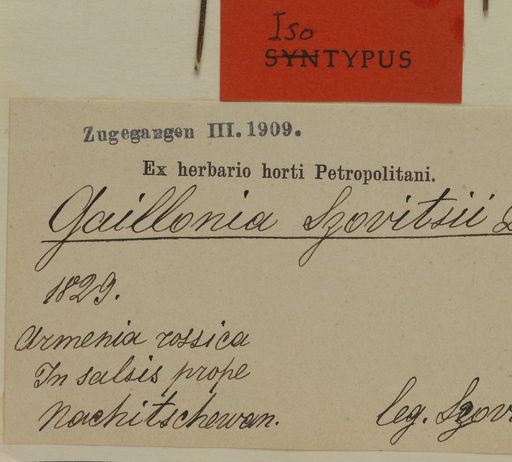 Iso
SYNTYPUS
Zugegangen III. 1909.
Ex herbario horti Petropolitani.
Gaillonia Szovitsii
1829.
Armenia rossica
In salsis prope
Nachitschewan.
leg. Szov